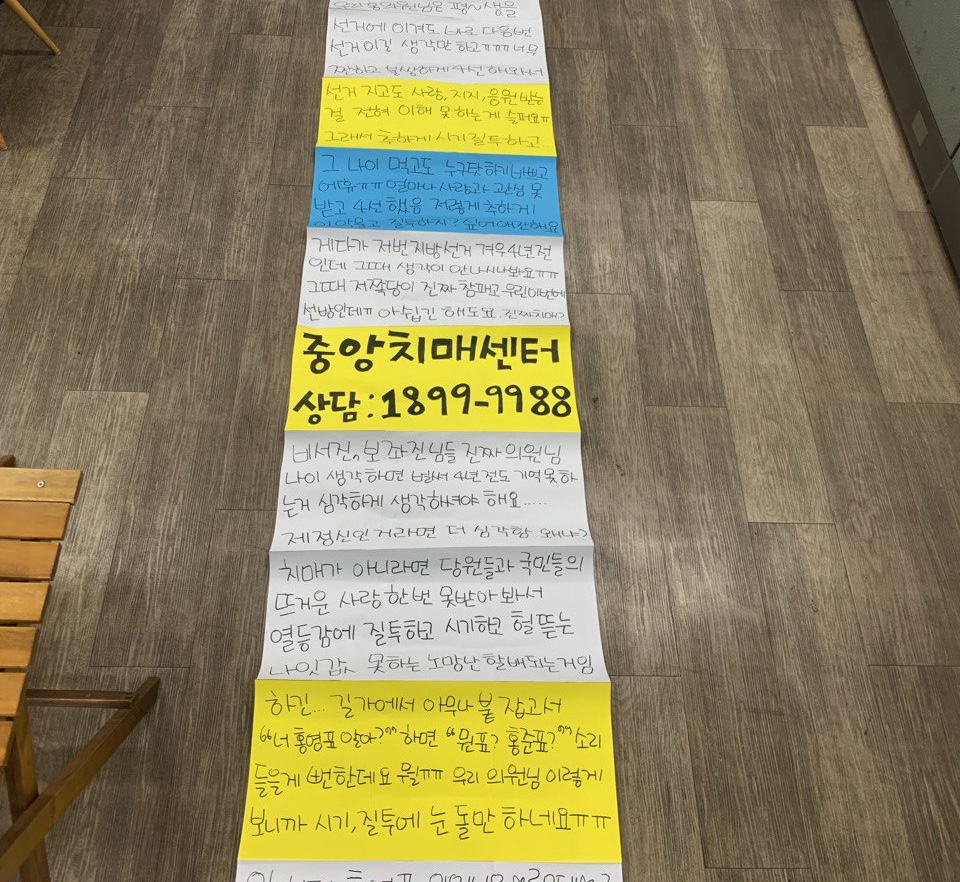 우리 홍의원님은 평~생을
선거에 이겨도 바로 다음번
선거 이길 생각만 하고ㅠㅠㅠ 너무
짠하고 불쌍하게 4선 해와서
선거 지고도 사랑, 지지, 응원 받는
걸 전혀 이해 못 하는게 슬퍼요ㅠ
그래서 추하게 시기질투하고
그 나이 먹고도 누구탓 하기 바쁘고
에휴ㅠㅠ 얼마나 사랑과 관심 못
받고 4선 했음 저렇게 추하게
이 악물고 질투하지? 싶어 애잔해요
게다가 저번 지방선거 겨우 4년전
인데 그때 생각이 안 나시나봐요ㅠㅠ
그때 저쪽당이 진짜 참패고 우린 이번에
선방인데ㅠ 아쉽긴 해도요. 진짜 치매?
중앙치매센터
상담:1899-9988
비서진, 보좌진님들 진짜 의원님
나이 생각하면 벌써 4년 전도 기억 못 하
는거 심각하게 생각하셔야 해요....
제정신인거라면 더 심각함. 왜냐?
치매가 아니라면 당원들과 국민들의
뜨거운 사랑 한번 못받아 봐서
열등감에 질투하고 시기하고 헐뜯는
나잇값 못하는 노망난 할배되는거임
하긴... 길가에서 아무나 붙 잡고서
“너 홍영표 알아?” 하면 “뭔표? 홍준표?” 소리
들을게 뻔한데요 뭘ㅠㅠ 우리 의원님 이렇게
보니까 시기, 질투에 눈 돌만 하네요ㅠㅠ